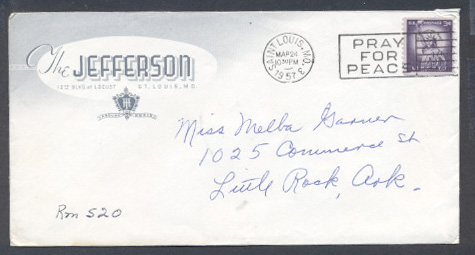 The JEFFERSON
12TH BLVD AT LOCUST ST. LOUIS, MO.
SAINT LOUIS, MO.
MAR 24
10 30 PM
1957
PRAY
FOR
PEACE
Miss Melba Garner
1025 Commerce St
Little Rock, Ark.
Rm 520